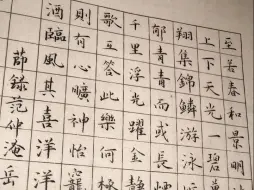 至若春和景明
上下天光一碧萬
翔集錦鱗游泳
郁青青而或長
千里浮光躍金靜
歌互答此樂何極
則有心曠神怡寵
酒臨風其喜洋洋
節錄范仲淹岳